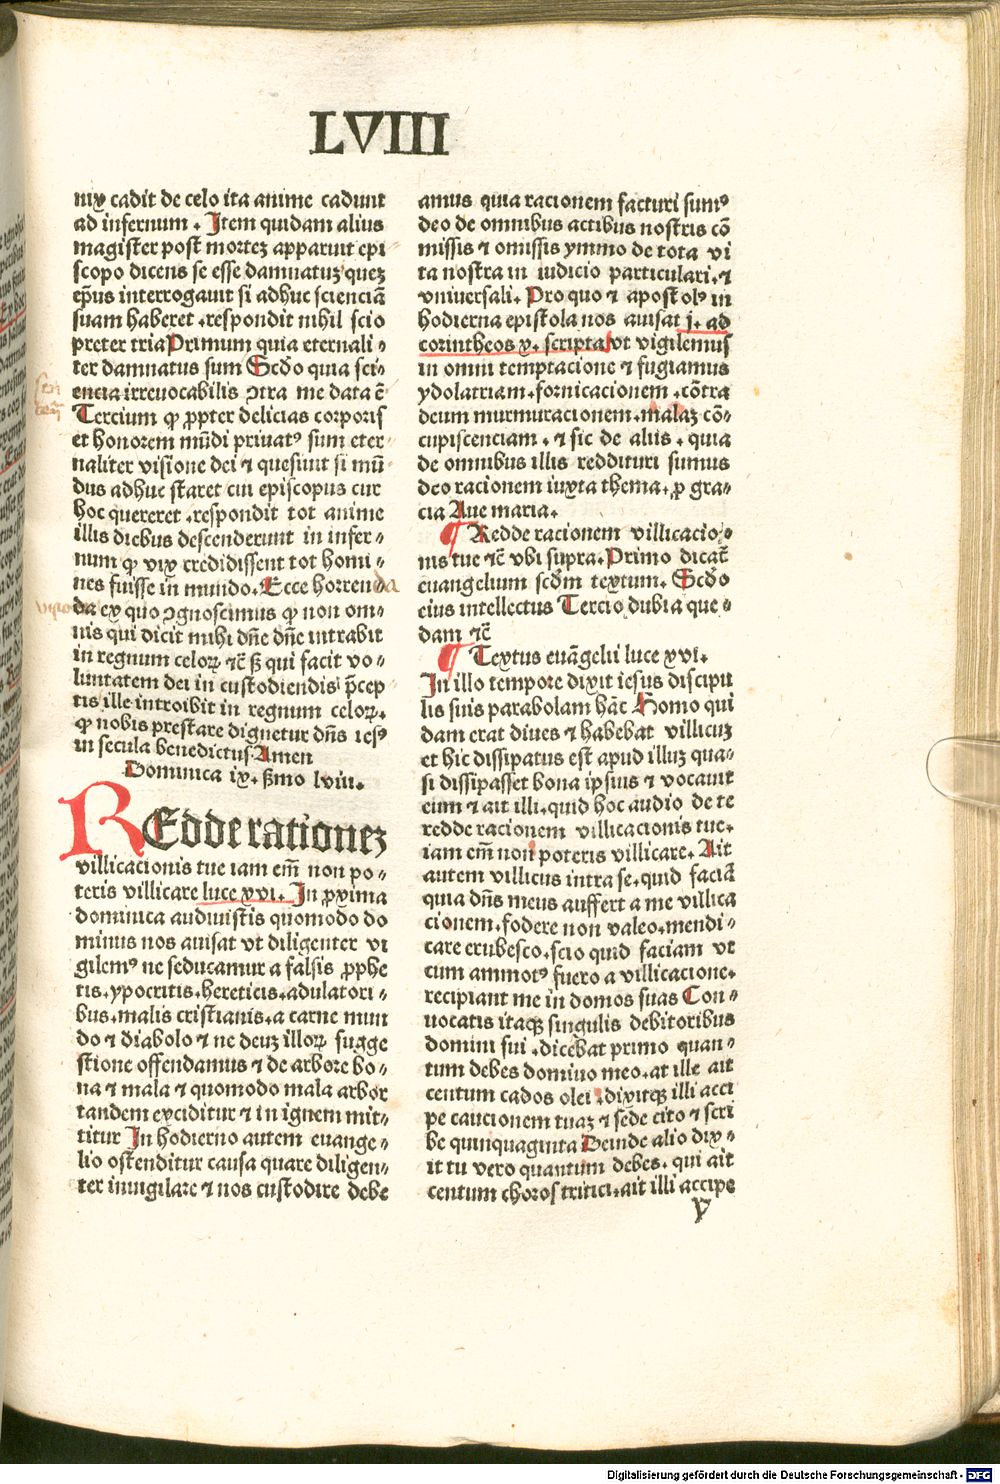 LVIII
nix cadit de celo ita anime cadunt
ad infernum . Item quidam alius
magister post mortez apparuit epi
scopo dicens se esse damnatuz quez
ep̄us interrogauit si adhuc scienciā
suam haberet .respondit nihil scio
preter tria Primum quia eternali⸗
ter damnatus sum Scd̄o quia sci⸗
encia irreuocabilis ꝯtra me data ē
Tercium ꝙ ꝓpter delicias corporis
et honorem mūdi priuatꝰ sum eter⸗
naliter visione dei ⁊ quesiuit si mū⸗
dus adhuc staret cui episcopus cur
hoc quereret .respondit tot anime
illis diebus descenderunt in infer⸗
num ꝙ vix credidissent tot homi⸗
nes fuisse in mundo. Ecce horrenda
da ex quo ꝯgnoscimus ꝙ non om⸗
nis qui dicit mihi dn̄e dn̄e intrabit
in regnum celoꝝ ⁊c̄ ꝭ qui facit vo⸗
luntatem dei in custodiendis p̄cep⸗
tis ille introibit in regnum celoꝝ.
ꝙ nobis prestare dignetur dn̄s iesꝰ
in secula benedictus Amen
Dominica ix. ẜmo lviii.
REdde rationez
villicacionis tue iam em̄ non po⸗
teris villicare luce xvi. In ꝓxima
dominica audiuistis quomodo do
minus nos auisat vt diligenter vi
gilemꝰ ne seducamur a falsis ꝓphe
tis.ypocritis.hereticis.adulatori⸗
bus.malis cristianis.a carne mun
do ⁊ diabolo ⁊ ne deuz illoꝝ sugge
stione offendamus ⁊ de arbore bo⸗
na ⁊ mala ⁊ quomodo mala arbor
tandem exciditur ⁊ in ignem mit⸗
titur In hodierno autem euange⸗
lio ostenditur causa quare diligen⸗
ter inuigilare ⁊ nos custodire debe
amus quia racionem facturi sumꝰ
deo de omnibus actibus nostris cō
missis ⁊ omissis ymmo de tota vi
ta nostra in iudicio particulari.⁊
vniuersali. Pro quo ⁊ apostolꝰ in
hodierna epistola nos auisat j. ad
corintheos x. scripta vt vigilemus
in omni temptacione ⁊ fugiamus
ydolatriam.fornicacionem.cōtra
deum murmuracionem.malaz cō⸗
cupiscenciam.⁊ sic de aliis. quia
de omnibus illis reddituri sumus
deo racionem iuxta thema.ꝓ gra⸗
cia Aue maria.
¶ Redde racionem villicacio⸗
nis tue ⁊c̄ vbi supra. Primo dicat̄
euangelium scd̄m textum. Scd̄o
eius intellectus Tercio dubia que⸗
dam ⁊c̄
¶ Textus euāgelii luce xvi.
In illo tempore dixit iesus discipu
lis suis parabolam hāc Homo qui
dam erat diues ⁊ habebat villicuz
et hic dissipatus est apud illuz qua⸗
si dissipasset bona ipsius ⁊ vocauit
eum ⁊ ait illi.quid hoc audio de te
redde racionem villicacionis tue.
iam em̄ non poteris villicare. Ait
autem villicus intra se.quid faciā
quia dn̄s meus auffert a me villica
cionem.fodere non valeo.mendi⸗
care erubesco.scio quid faciam vt
cum ammotꝰ fuero a villicacione.
recipiant me in domos suas Con⸗
uocatis itaqꝫ singulis debitoribus
domini sui .dicebat primo quan⸗
tum debes domino meo.at ille ait
centum cados olei .dixitqꝫ illi acci
pe caucionem tuaz ⁊ sede cito ⁊ scri
be quinquaginta Deinde alio dix⸗
it tu vero quantum debes. qui ait
centum choros tritici.ait illi accipe
y
Digitalisierung gefördert durch die Deutsche Forschungsgemeinschaft - DFG